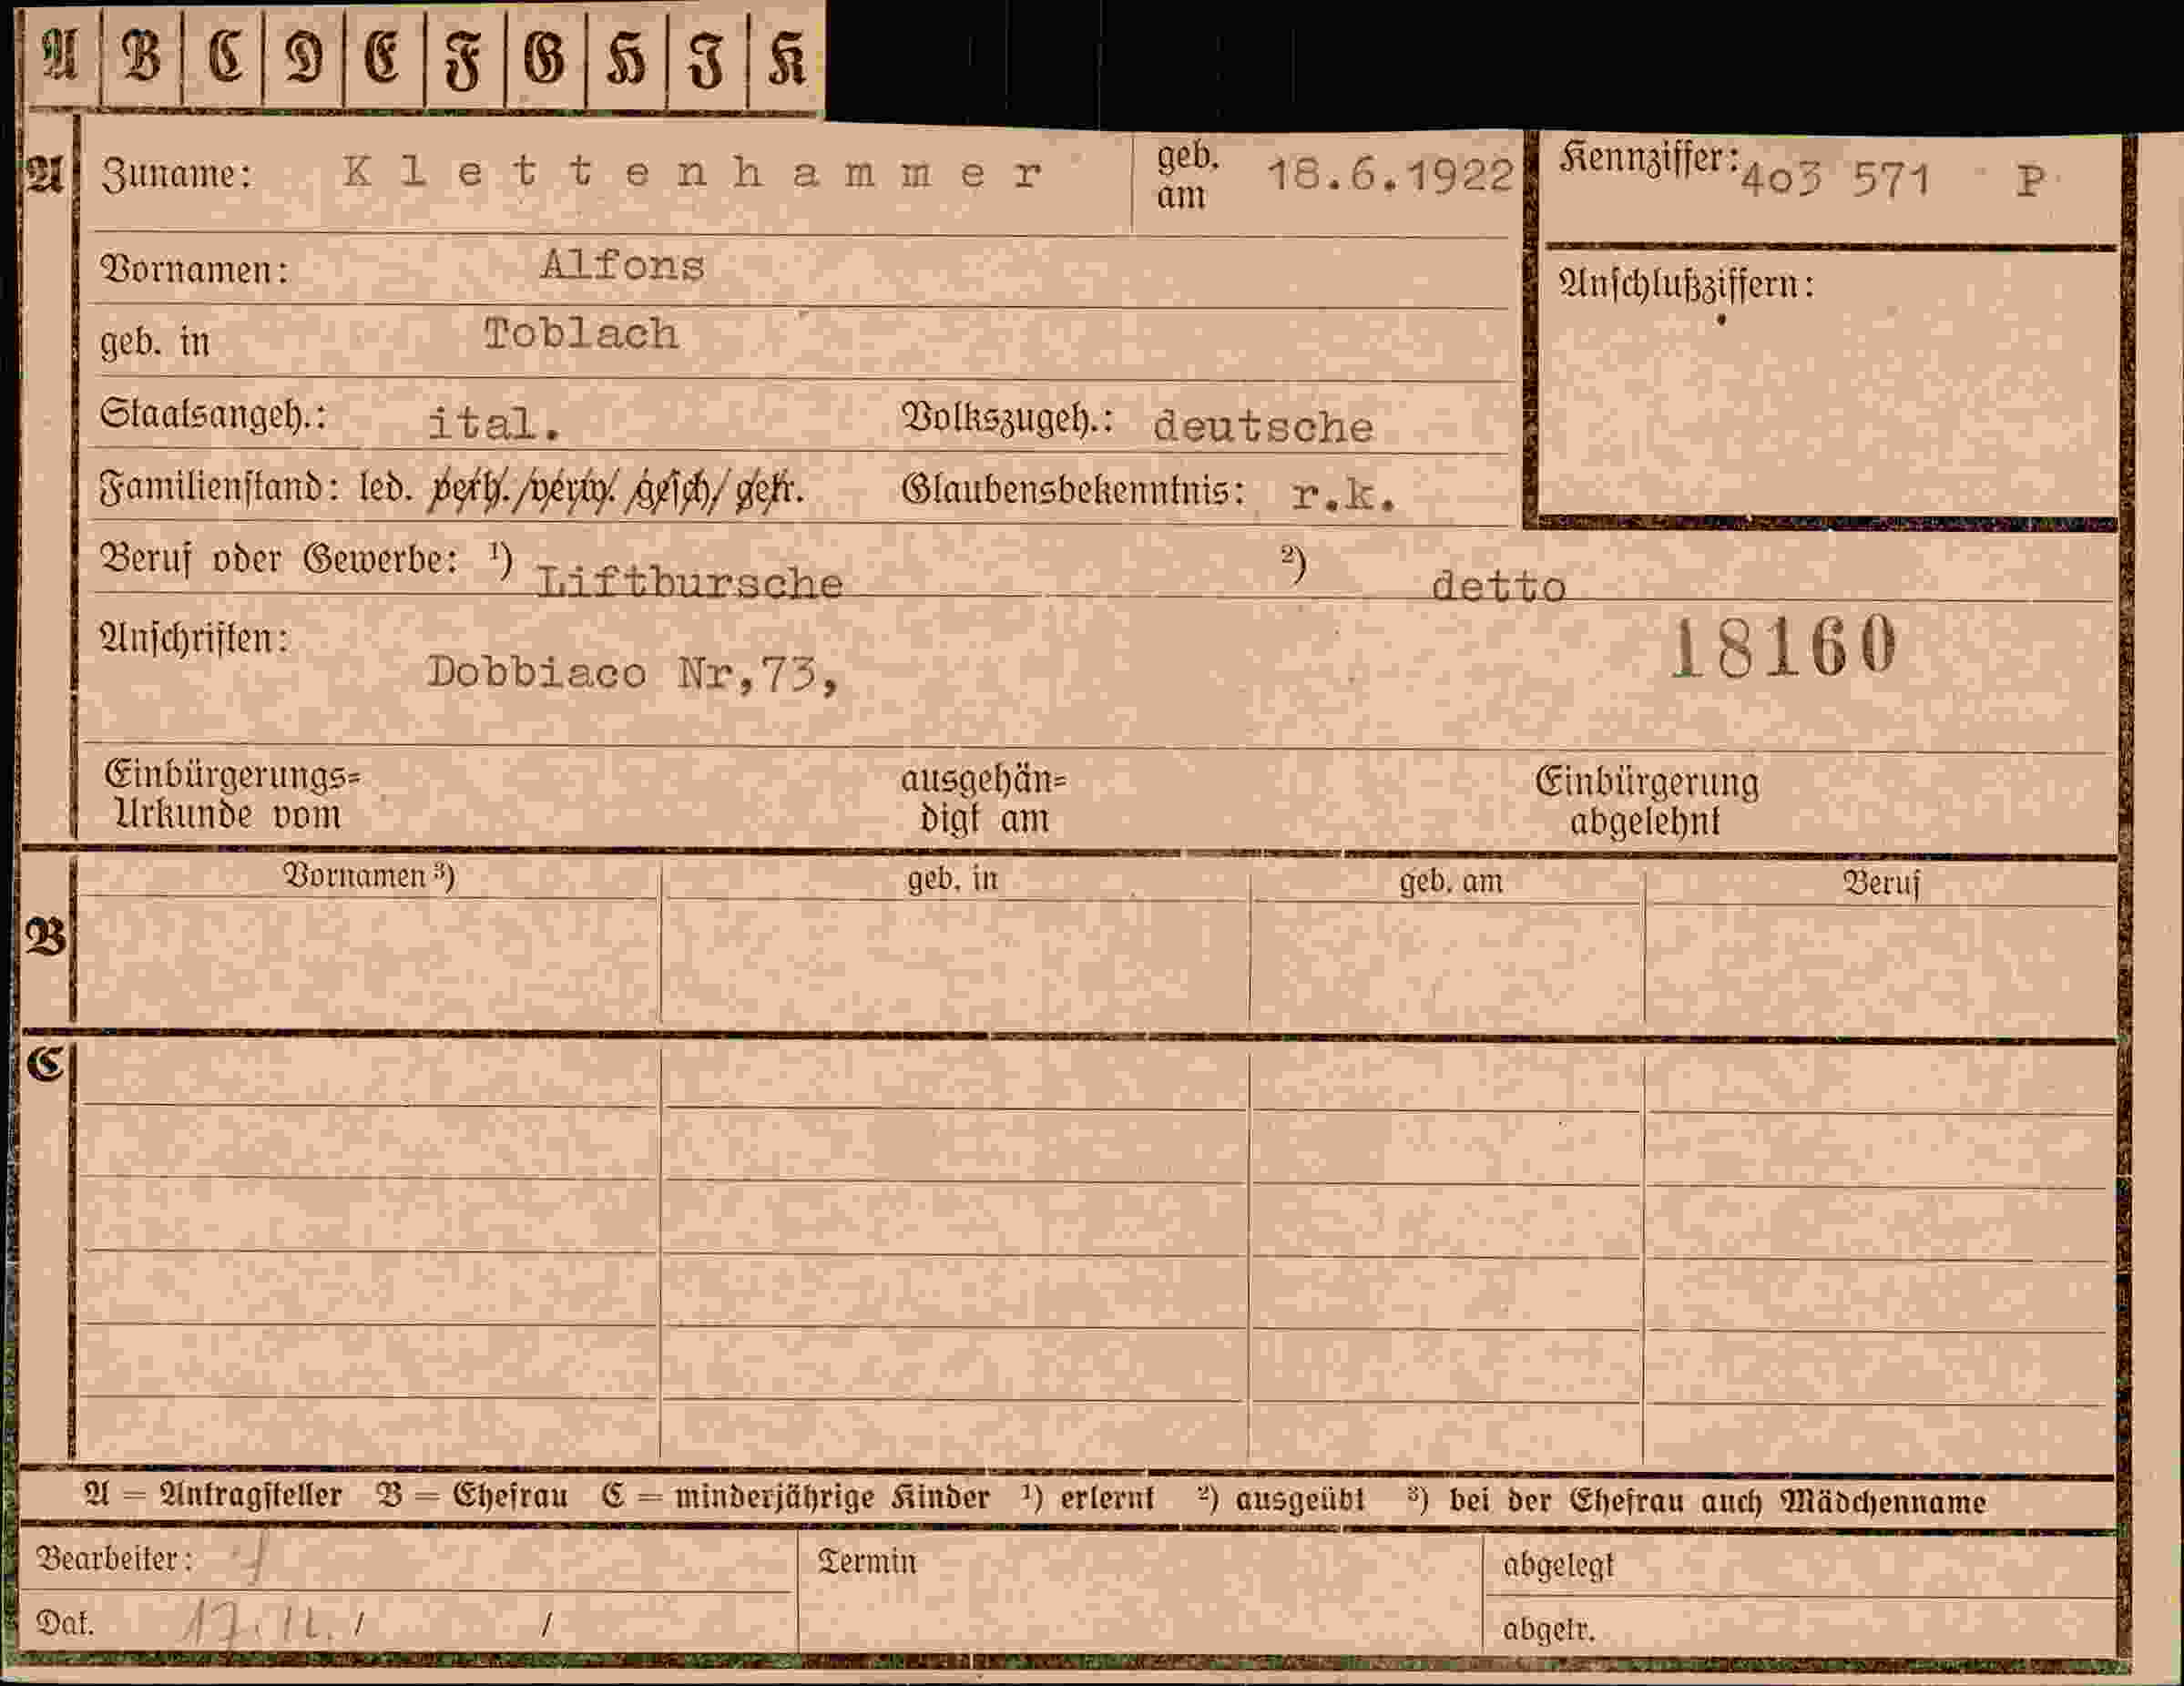 A B C D E F G H I K
A Zuname: Klettenhammer geb. am 18.6.1922 Kennziffer: 403 571 P
Vornamen: Alfons
Anschlußziffern:
geb. in Toblach
Staatsangeh.: ital. Volkszugeh.: deutsche
Familienstand: led. verh. verw. gesch. getr. Glaubensbekenntnis: r.k.
Beruf oder Gewerbe: ¹) Liftbursche ²) detto
Anschriften: 18160
Dobbiaco Nr,73,
Einbürgerungs= ausgehän= Einbürgerung
Urkunde vom digt am abgelehnt
Vornamen ³) geb. in geb. am Beruf
B
C
A = Antragsteller B = Ehefrau C = minderjährige Kinder ¹) erlernt ²) ausgeübt ³) bei der Ehefrau auch Mädchenname
Bearbeiter: Termin abgelegt
Dat. / / abgetr.